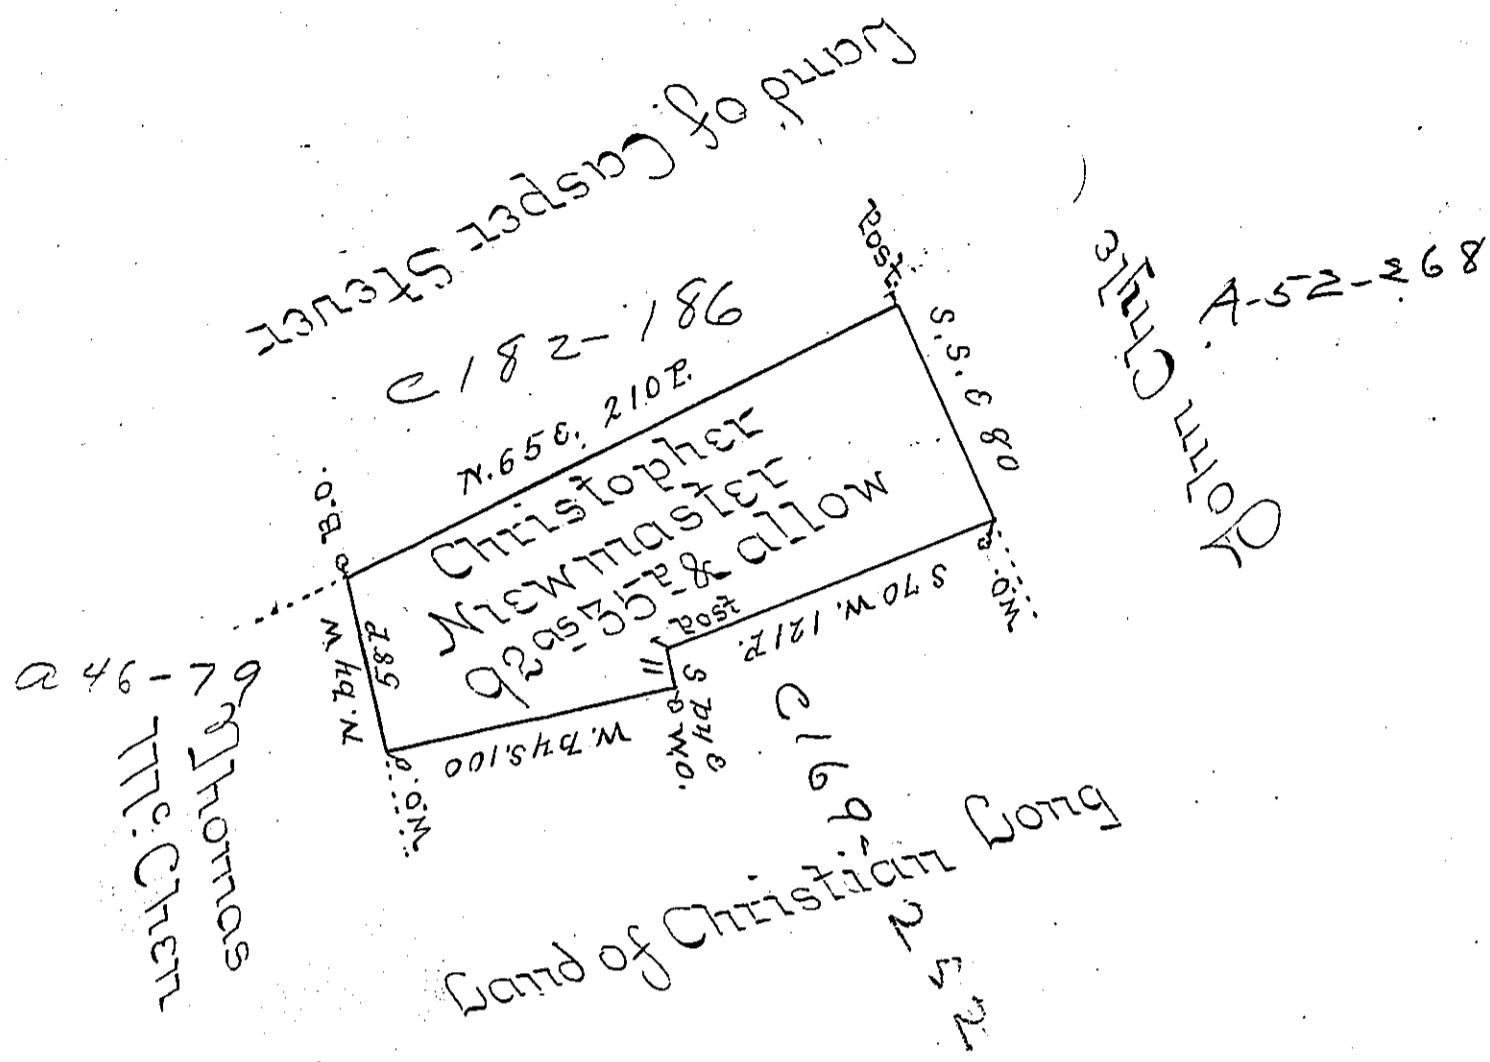 Land of Casper Stever
C 182-186
Post
S.S.E 80
John Chryle
A-52-268
N.65E. 210P.
B.O.
Christopher
Newmaster
92a 59p & allow
Post
S 70 W. 121P.
W.O.
11
S by E
W.O.
W. by S. 100
W.O.
N. by W
58P
a 46-79
Thomas
McChen
C169-252
Land of Christian Long